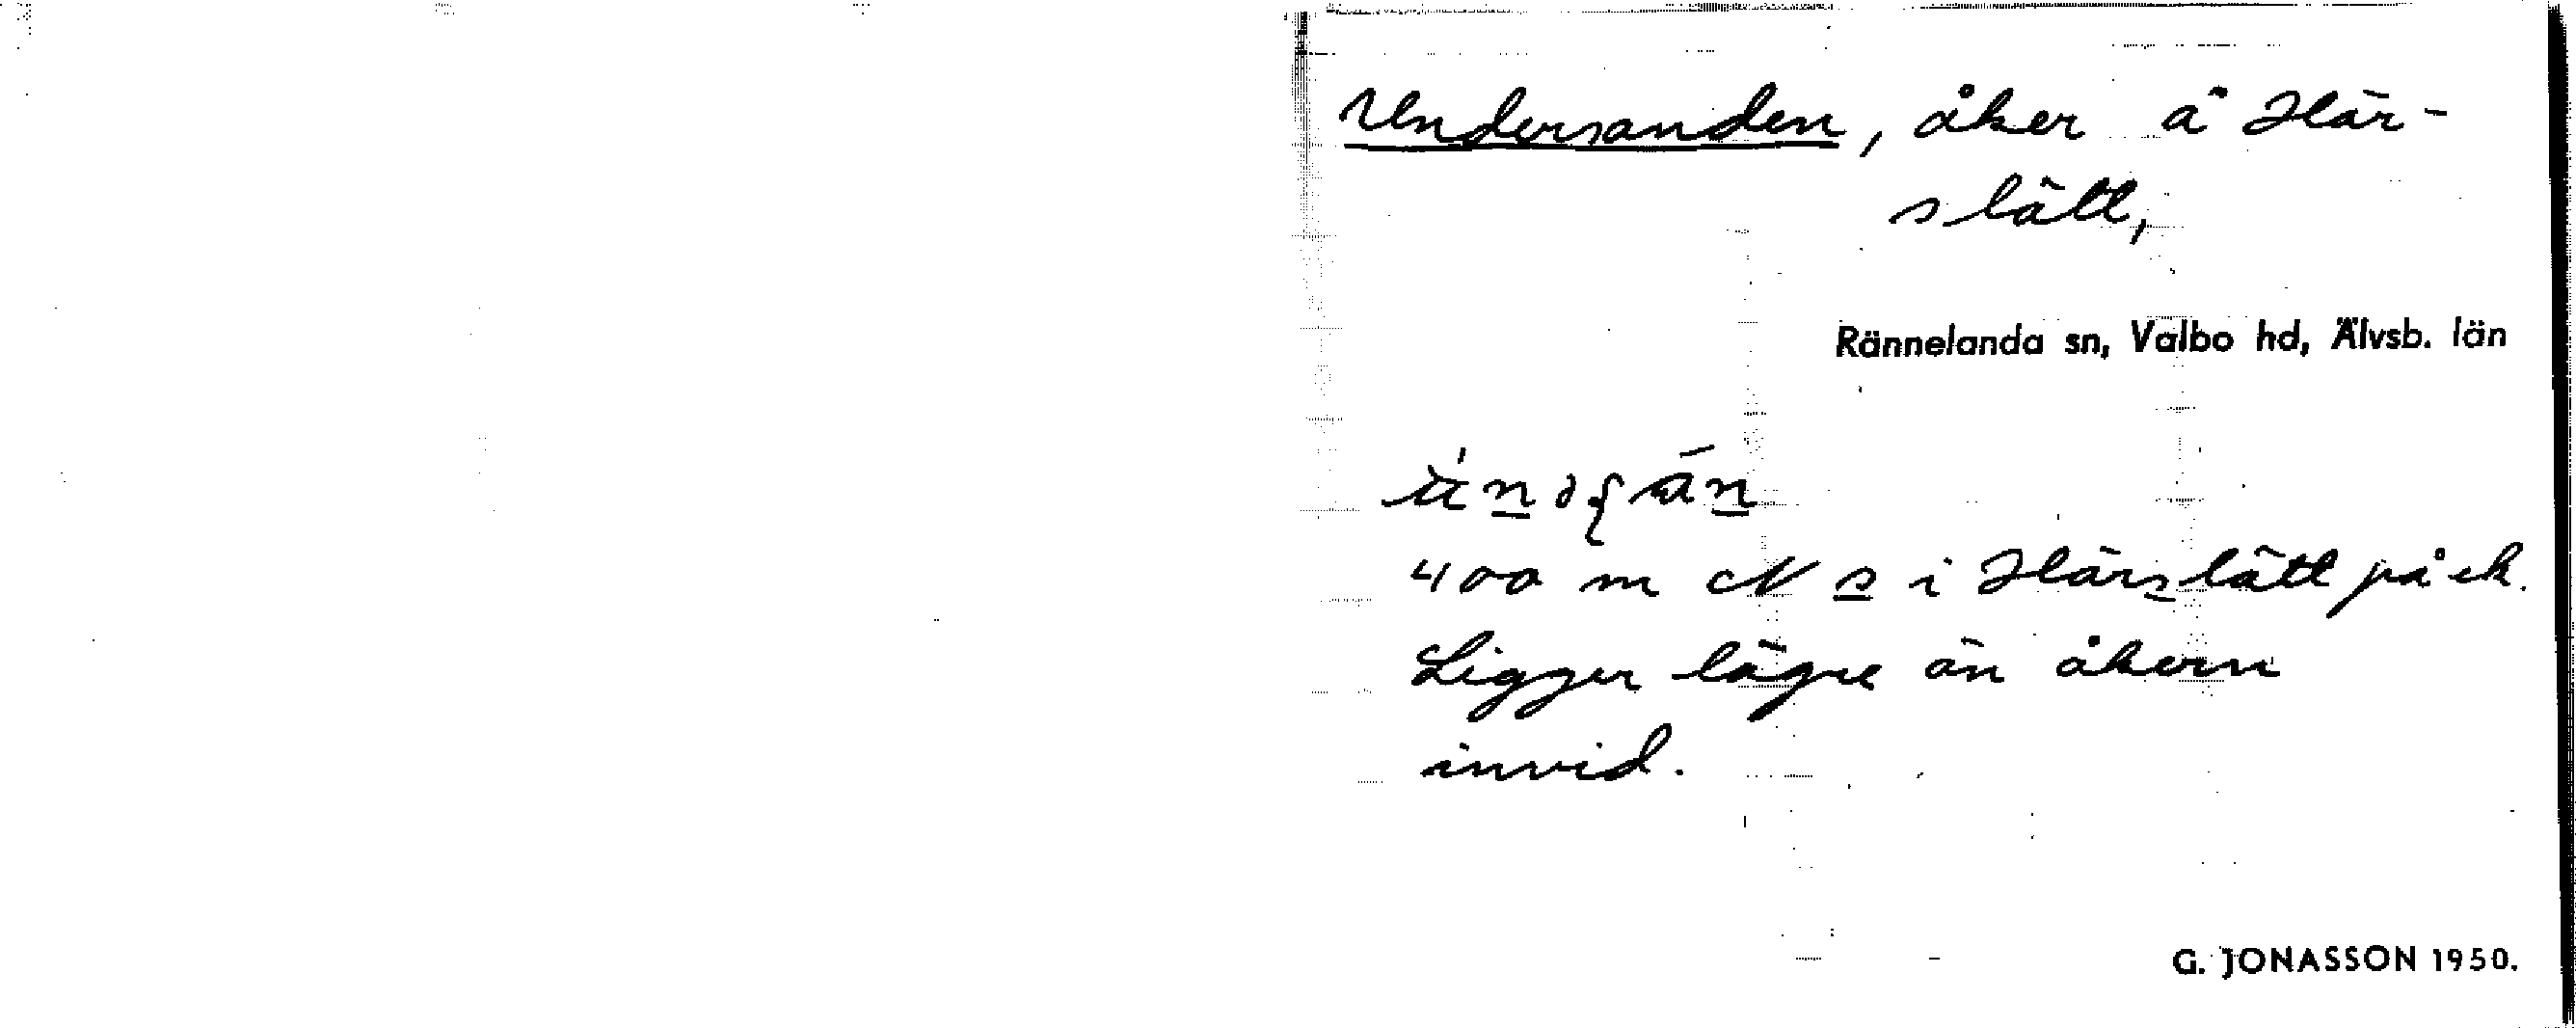 Undersanden, åker å Här-
slätt,
Rännelanda sn, Valbo hd, Älvsb. län
400 m N s i Härslätt på ek.
Ligger lägre än åkern
invid.
G. JONASSON 1950.